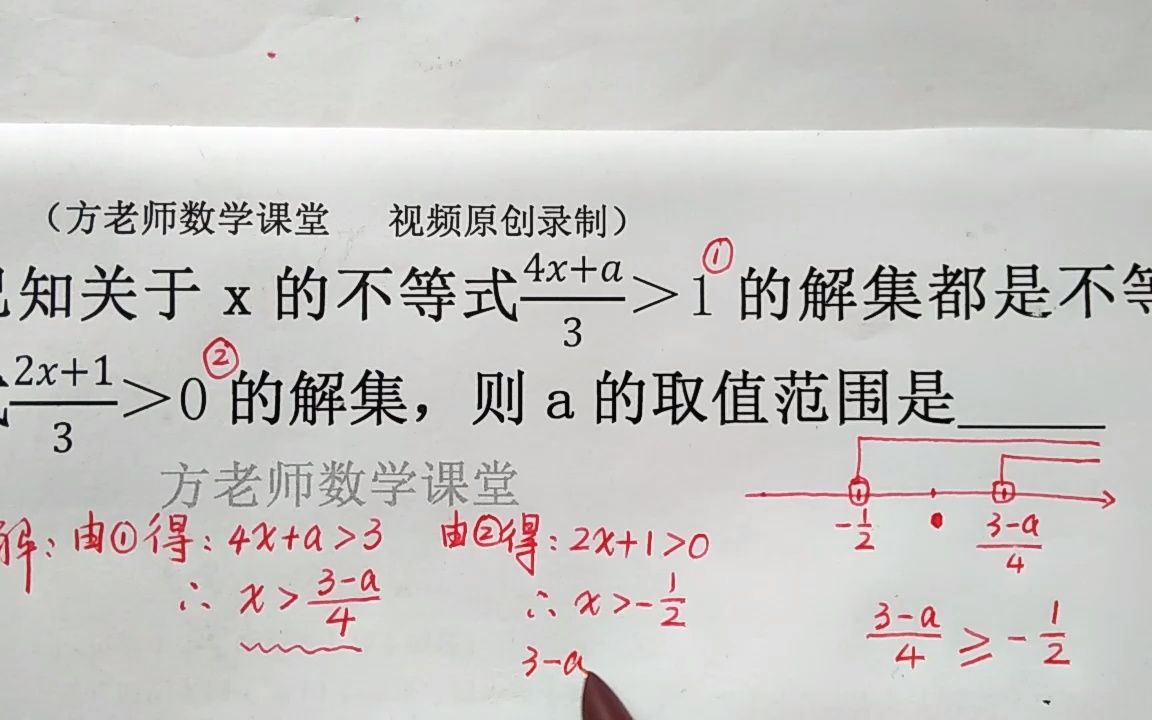 （方老师数学课堂 视频原创录制）
已知关于 x 的不等式 (4x+a)/3 > 1 ① 的解集都是不等
式 (2x+1)/3 > 0 ② 的解集，则 a 的取值范围是______
方老师数学课堂
-1/2 (3-a)/4
解：由①得：4x+a>3 由②得：2x+1>0
∴ x > (3-a)/4 ∴ x > -1/2
(3-a)/4 ≥ -1/2
3-a